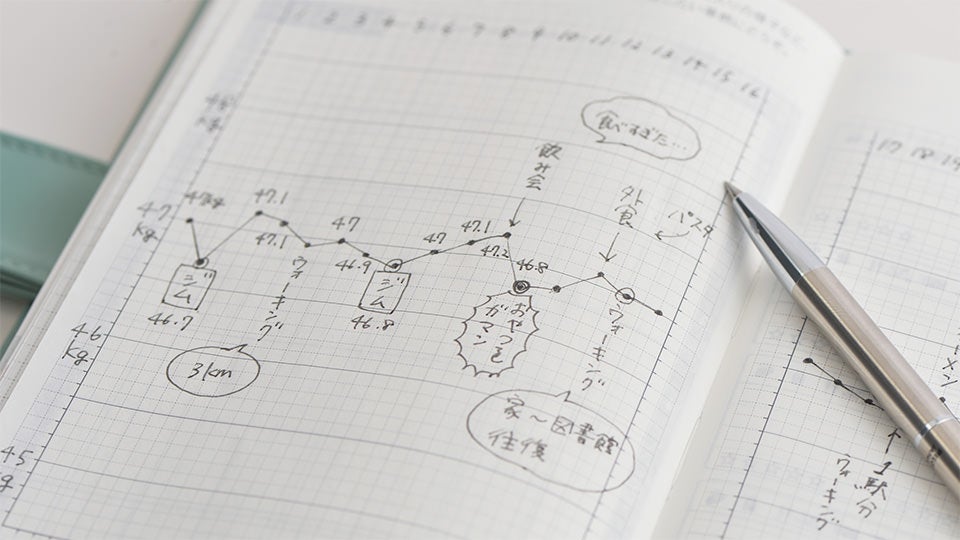 1 2 3 4 5 6 7 8 9 10 11 12 13 14 15 16
17 18 19
48
kg
食べすぎた…
飲み会
外食
パスタ
47
kg
47.1
47.1
47
46.9
47
47.1
47.2
46.8
ジム
46.7
ウォーキング
3km
ジム
46.8
おやつを
ガマン
ウォーキング
家〜図書館
往復
46
kg
45
1駅分
ウォーキング